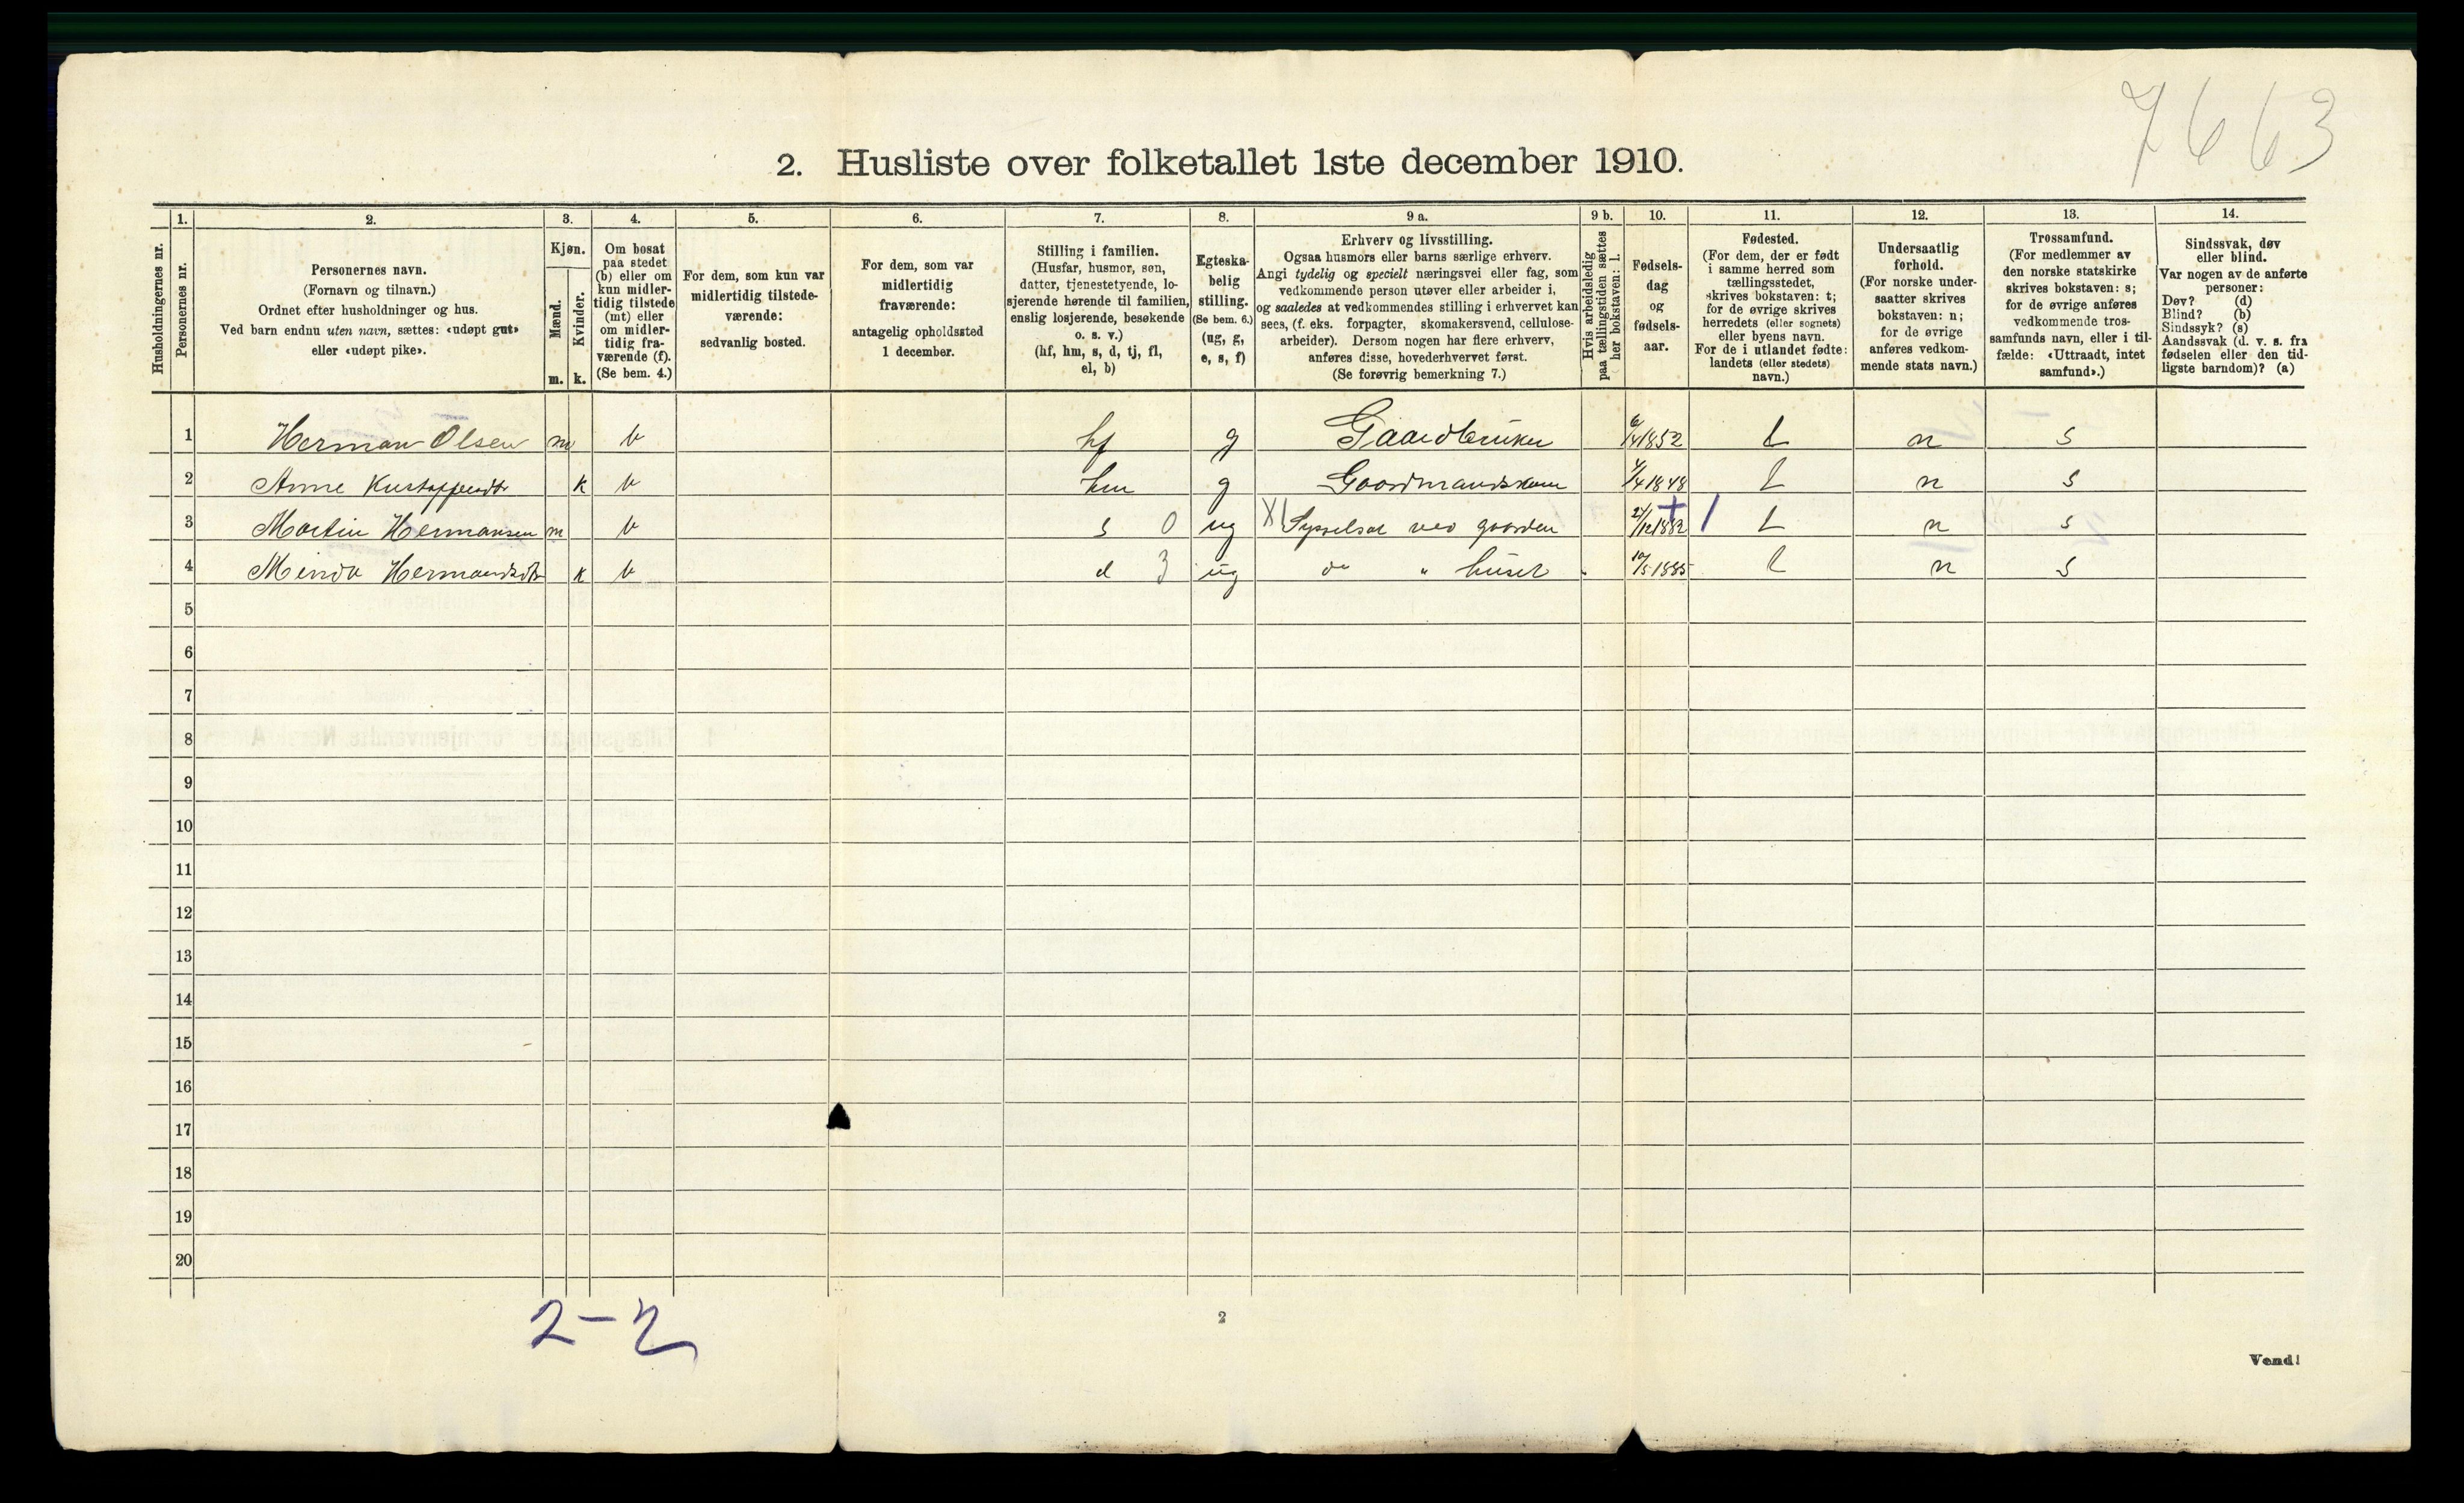 7663
2. Husliste over folketallet 1ste december 1910.
1. 2. 3. 4. 5. 6. 7. 8. 9 a. 9 b. 10. 11. 12. 13. 14.
Husholdningernes nr.
Personernes nr.
Personernes navn.
(Fornavn og tilnavn.)
Ordnet efter husholdninger og hus.
Ved barn endnu uten navn, sættes: «udøpt gut»
eller «udøpt pike».
Kjøn.
Mænd.
m.
Kvinder.
k.
Om bosat
paa stedet
(b) eller om
kun midler-
tidig tilstede
(mt) eller
om midler-
tidig fra-
værende (f).
(Se bem. 4.)
For dem, som kun var
midlertidig tilstede-
værende:
sedvanlig bosted.
For dem, som var
midlertidig
fraværende:
antagelig opholdssted
1 december.
Stilling i familien.
(Husfar, husmor, søn,
datter, tjenestetyende, lo-
sjerende hørende til familien,
enslig losjerende, besøkende
o. s. v.)
(hf, hm, s, d, tj, fl,
el, b)
Egteska-
belig
stilling.
(Se bem. 6.)
(ug, g,
e, s, f)
Erhverv og livsstilling.
Ogsaa husmors eller barns særlige erhverv.
Angi tydelig og specielt næringsvei eller fag, som
vedkommende person utøver eller arbeider i,
og saaledes at vedkommendes stilling i erhvervet kan
sees, (f. eks. forpagter, skomakersvend, cellulose-
arbeider). Dersom nogen har flere erhverv,
anføres disse, hovederhvervet først.
(Se forøvrig bemerkning 7.)
Hvis arbeidsledig
paa tællingstiden sættes
her bokstaven: l.
Fødsels-
dag
og
fødsels-
aar.
Fødested.
(For dem, der er født
i samme herred som
tællingsstedet,
skrives bokstaven: t;
for de øvrige skrives
herredets (eller sognets)
eller byens navn.
For de i utlandet fødte:
landets (eller stedets)
navn.)
Undersaatlig
forhold.
(For norske under-
saatter skrives
bokstaven: n;
for de øvrige
anføres vedkom-
mende stats navn.)
Trossamfund.
(For medlemmer av
den norske statskirke
skrives bokstaven: s;
for de øvrige anføres
vedkommende tros-
samfunds navn, eller i til-
fælde: «Uttraadt, intet
samfund».)
Sindssvak, døv
eller blind.
Var nogen av de anførte
personer:
Døv? (d)
Blind? (b)
Sindssyk? (s)
Aandssvak (d. v. s. fra
fødselen eller den tid-
ligste barndom)? (a)
1 Herman Olsen m b hf g Gaardbruker 6/4 1852 t n s
2 Anne k b hm g Gaardmandskone 4/4 1848 t n s
3 Martin Hermansen m b s 0 ug X Sysselsat ved gaarden 21/12 1882 t n s
4 Minda Hermandsdtr k b d 3 ug do " huset 10/5 1885 t n s
5
6
7
8
9
10
11
12
13
14
15
16
17
18
19
20
2-2
2
Vend!